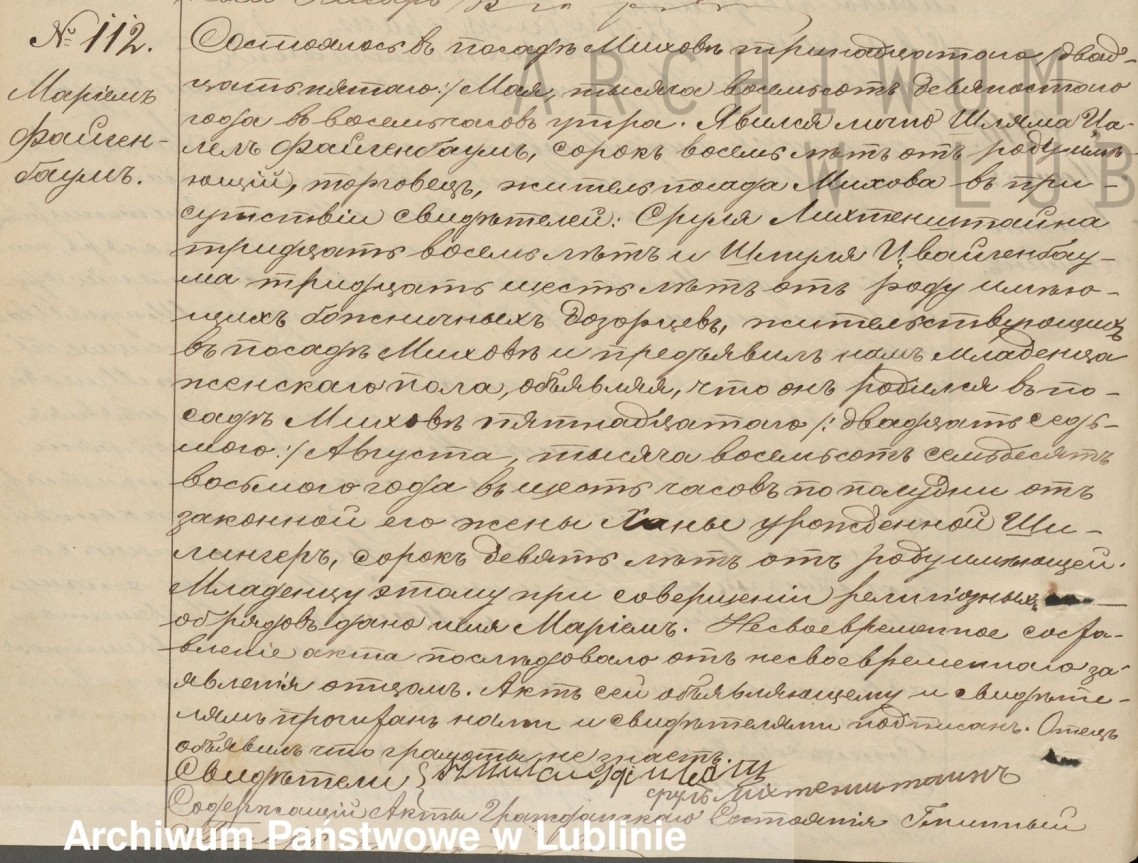 № 112.
Маріемъ
Файген-
баумъ.
Состоялось въ посадѣ Миховѣ тринадцатаго /двад-
цать пятаго:/ Мая, тысяча восемьсотъ девяностаго
года въ восемь часовъ утра. Явился лично Шляма Ца-
лель Файгенбаумъ, сорокъ восемь лѣтъ отъ роду имѣ-
ющій, торговецъ, житель посада Михова въ при-
сутствіи свидѣтелей: Сруля Лихтенштайна
тридцать восемь лѣтъ и Шмуля Цвайгенбау-
ма тридцать шесть лѣтъ отъ роду имѣю-
щихъ божничныхъ дозорцевъ, жительствующихъ
въ посадѣ Миховѣ и предъявилъ намъ младенца
женскаго пола, объявляя, что онъ родился въ по-
садѣ Миховѣ пятнадцатаго /: двадцать седь-
мого:/ Августа, тысяча восемьсотъ семьдесятъ
восьмого года въ шесть часовъ по полудни отъ
законной его жены Ханы урожденной Ши-
лингеръ, сорокъ девять лѣтъ отъ роду имѣющей.
Младенцу этому при совершеніи религіозныхъ
обрядовъ дано имя Маріемъ. Несвоевременное соста-
вленіе акта послѣдовало отъ несвоевременнаго за-
явленія отцомъ. Актъ сей объявляющему и свидѣте-
лямъ прочитанъ нами и свидѣтелями подписанъ. Отецъ
объявилъ что грамоты не знаетъ.
Свидѣтели {
сруль Лихтенштаинъ
Содержащій Акты Гражданскаго Состоянія Гминный
ARCHIWUM
W LUB
Archiwum Państwowe w Lublinie